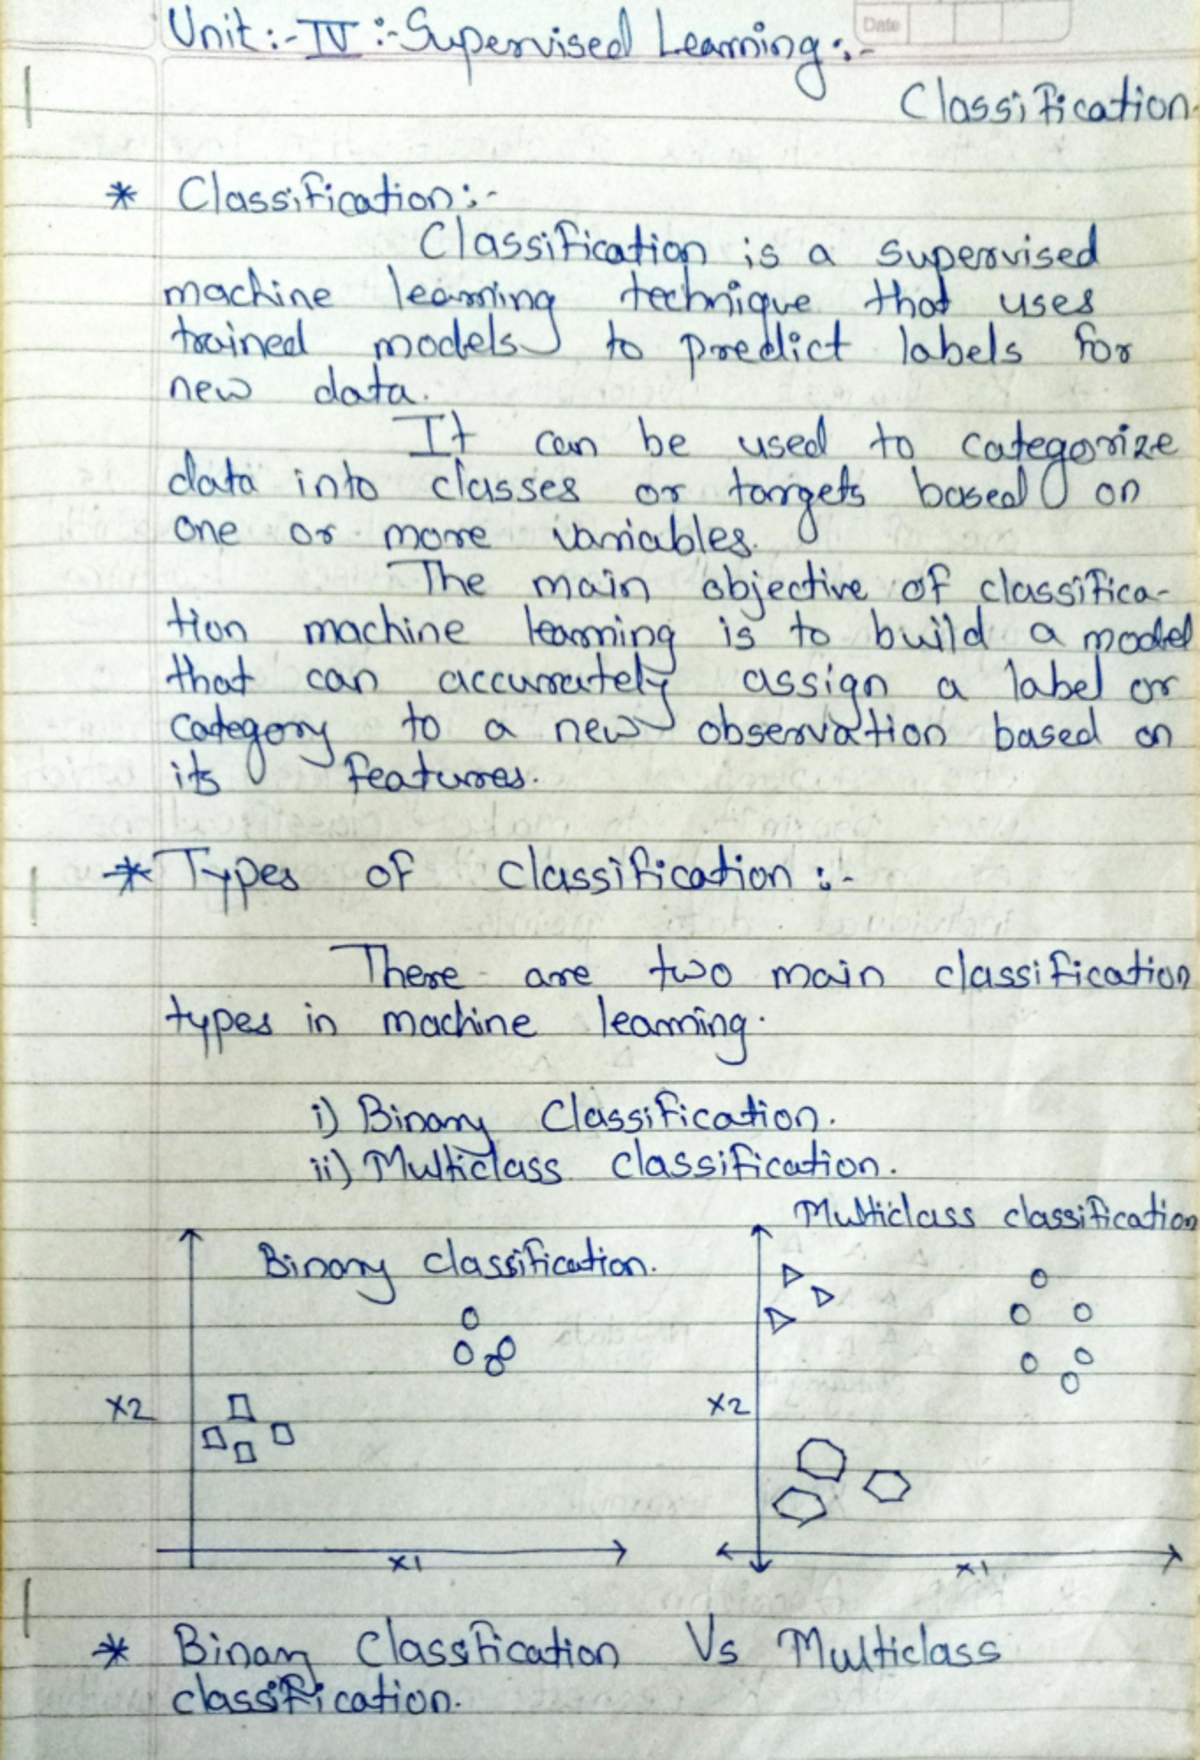 Unit :- IV :- Supervised Learning :-
Date
Classification
* Classification :-
Classification is a supervised
machine learning technique that uses
trained models to predict labels for
new data.
It can be used to categorize
data into classes or targets based on
one or more variables.
The main objective of classifica-
tion machine learning is to build a model
that can accurately assign a label or
category to a new observation based on
its features.
* Types of classification :-
There are two main classification
types in machine learning.
i) Binary Classification.
ii) Multiclass classification.
Multiclass classification
Binary classification.
X2
X2
X1
X1
* Binary Classification Vs Multiclass
classification.